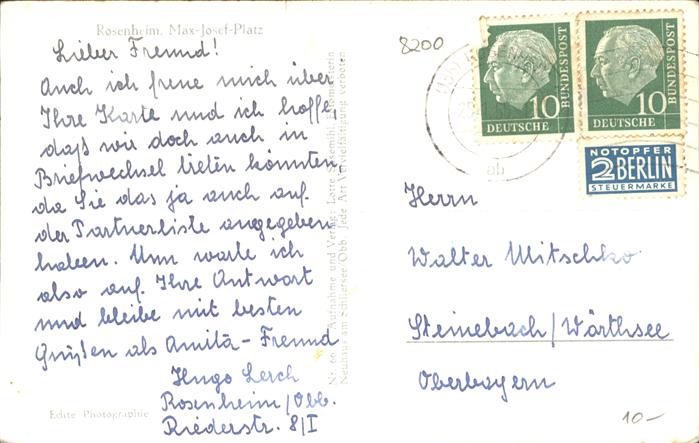 Rosenheim, Max-Josef-Platz
Lieber Freund!
Auch ich freue mich über
Ihre Karte und ich hoffe,
daß wir doch auch in
Briefwechsel treten könnten,
da Sie das ja auch auf
der Partnerliste angegeben
haben. Nun warte ich
also auf Ihre Antwort
und bleibe mit besten
Grüßen als Amitā-Freund
Hugo Lerch
Rosenheim/Obb.
Riederstr. 8/I
Echte Photographie
Aufnahme und Verlag: Lotte
Neuhaus am Schliersee/Obb. Jede Art Vervielfältigung verboten
8200
10
DEUTSCHE
BUNDESPOST
10
DEUTSCHE
BUNDESPOST
NOTOPFER
2 BERLIN
STEUERMARKE
ab
Herrn
Walter Mitschko
Steinebach/Wörthsee
Oberbayern
10.-